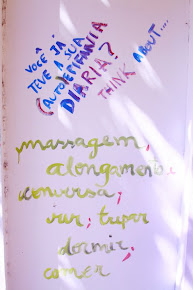 VOCÊ JÁ
TEVE A SUA
(AUTO)EPIFANIA
DIÁRIA?
THINK ABOUT...
massagem,
alongamento
conversa;
rir; trepar
dormir,
comer